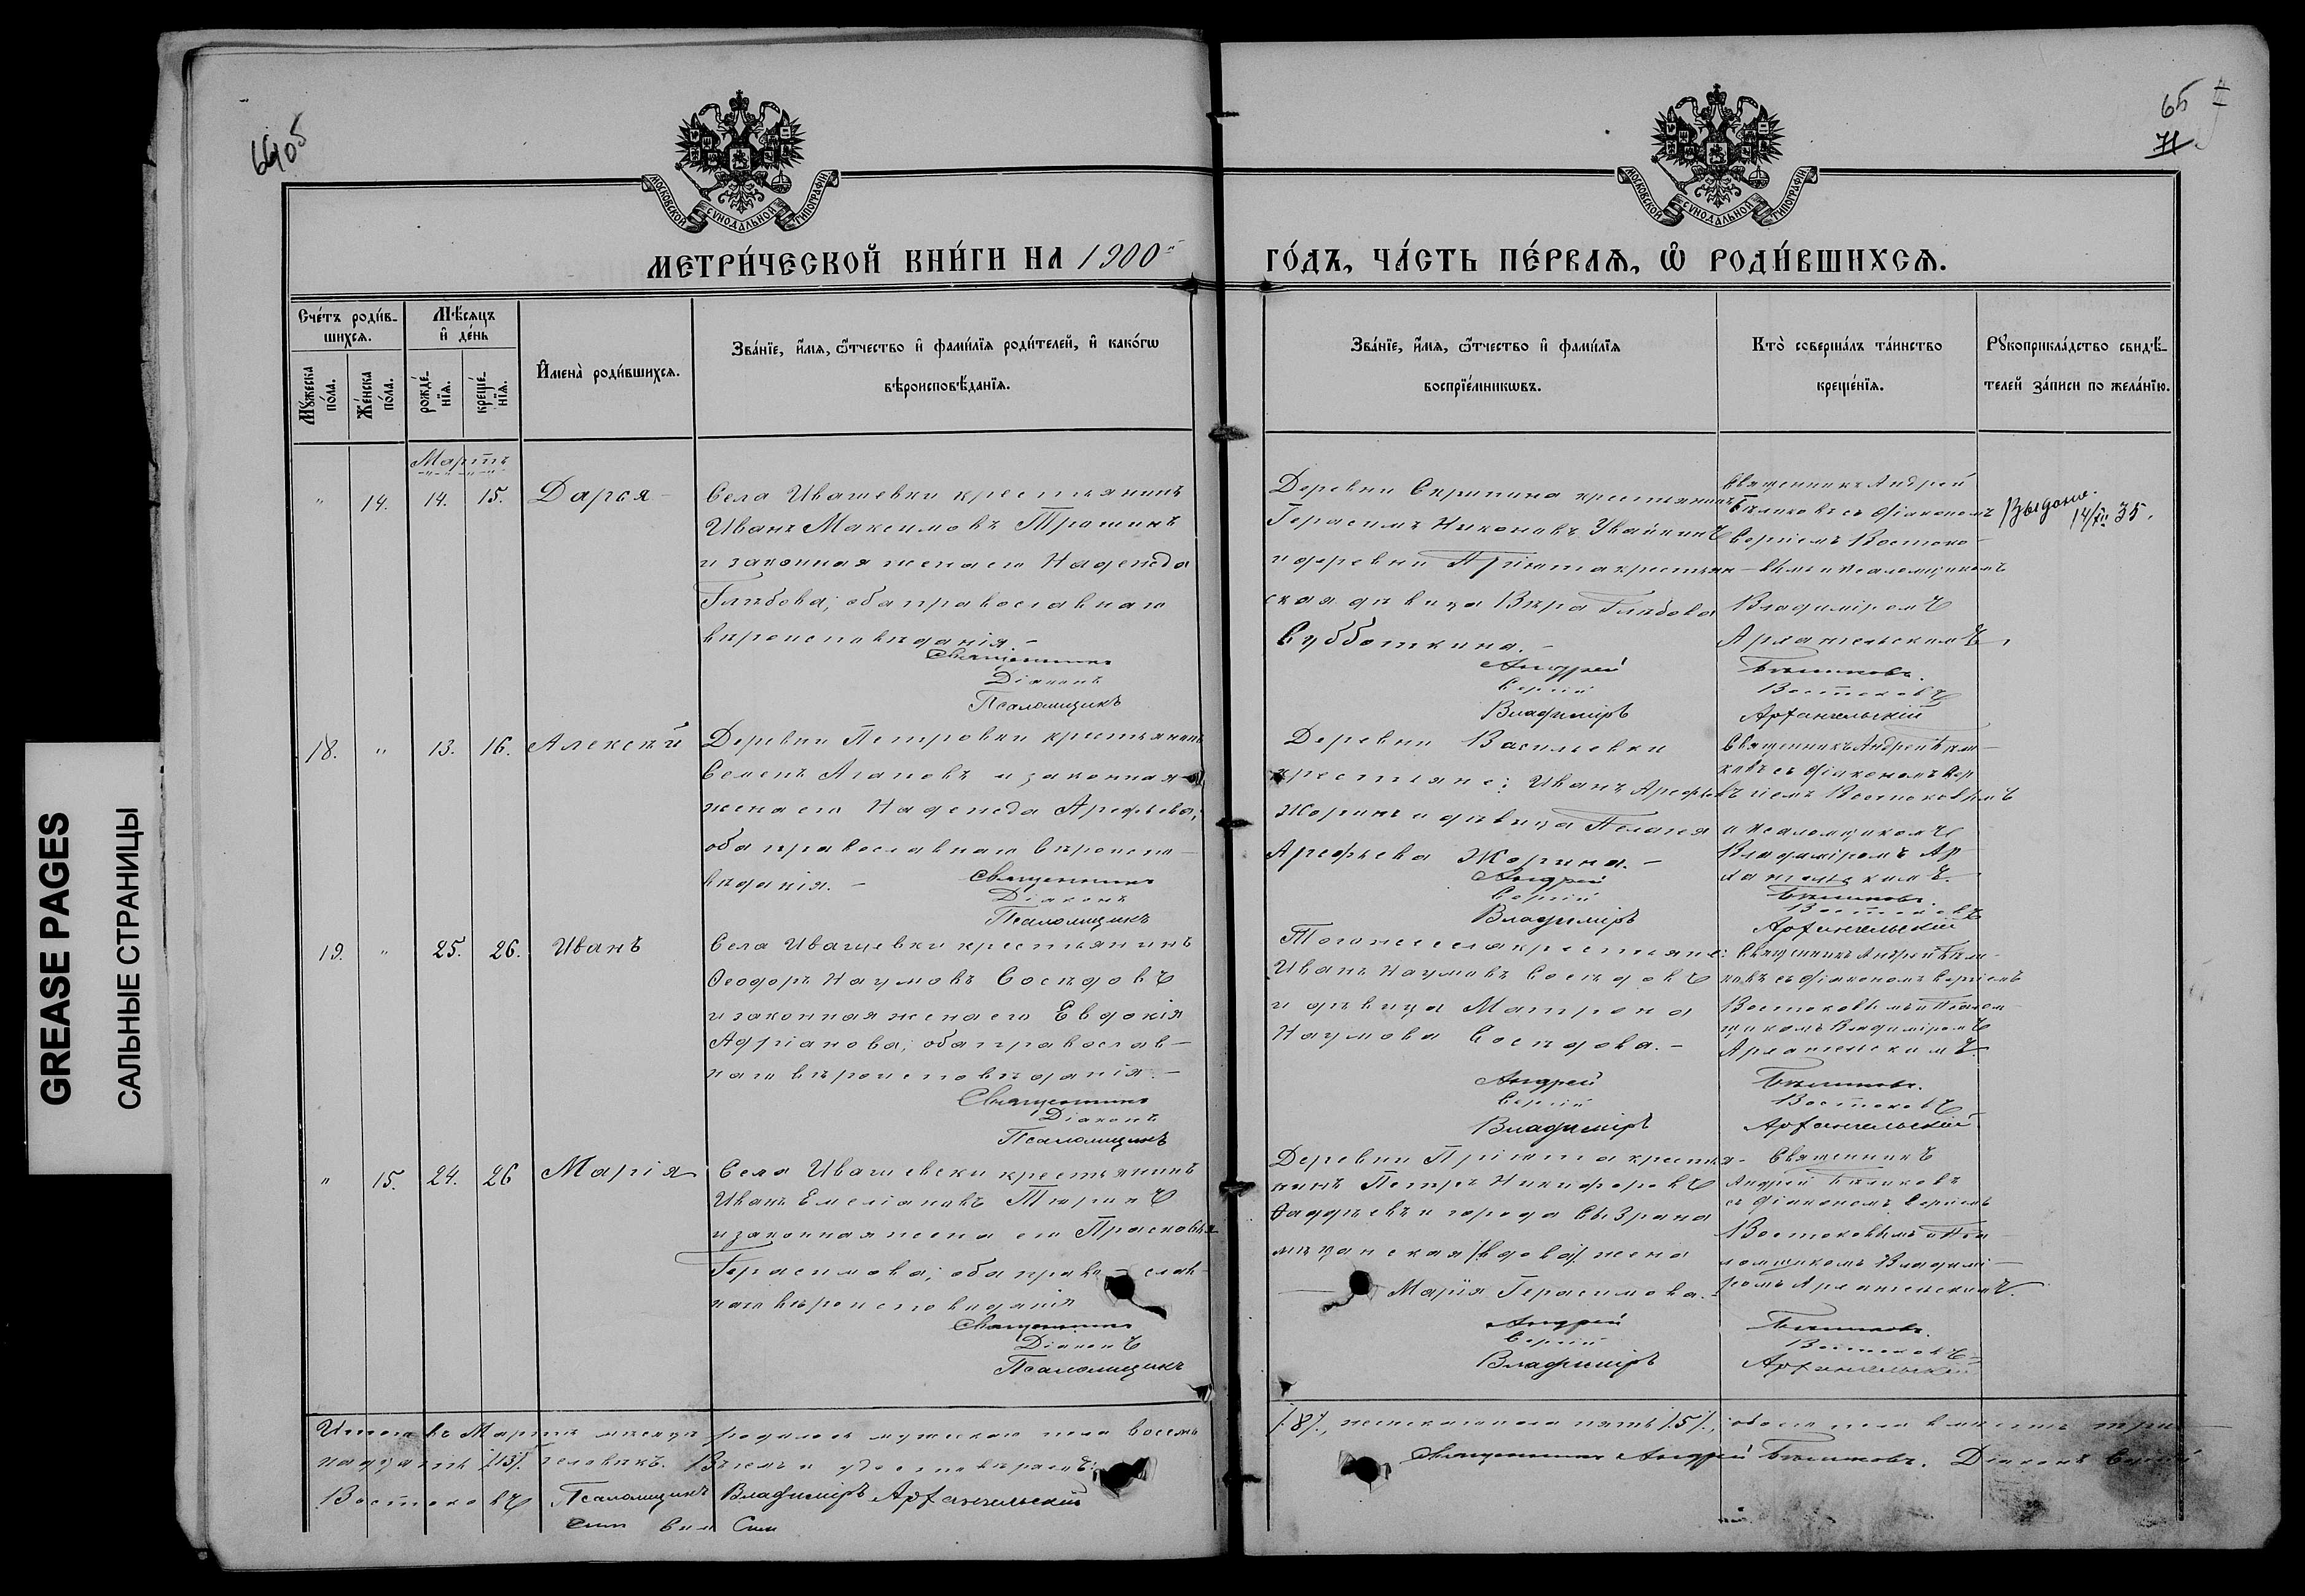 GREASE PAGES
САЛЬНЫЕ СТРАНИЦЫ
65
71
МОСКОВСКОЙ СѴНОДАЛЬНОЙ ТИПОГРАФІИ
МОСКОВСКОЙ СѴНОДАЛЬНОЙ ТИПОГРАФІИ
МЕТРИ́ЧЕСКОЙ КНИ́ГИ НА 1900й
ГО́ДЪ, ЧА́СТЬ ПЕ́РВАѦ, Ѡ РОДИ́ВШИХСѦ.
Сче́тъ роди́в-
шихсѧ.
Мꙋ́жеска по́ла.
Же́нска по́ла.
Мѣ́сѧцъ
и де́нь
рожде́-
нїѧ.
креще́-
нїѧ.
И҆мена̀ роди́вшихсѧ.
Зва́нїе, и҆́мѧ, ѻ҆́тчество и҆ фами́лїѧ роди́телей, и҆ како́гѡ
вѣроисповѣ́данїѧ.
Зва́нїе, и҆́мѧ, ѻ҆́тчество и҆ фами́лїѧ
воспрїе́мникѡвъ.
Кто̀ соверша́лъ та́инство
креще́нїѧ.
Рꙋкоприкла́дство свидѣ́-
телей за́писи по жела́нїю.
Мартъ
" 14. 14. 15. Дарья
Села Ивашевки крестьянинъ
Иванъ Максимовъ Трошинъ
и законная жена его Надежда
Глѣбова; оба православнаго
вѣроисповѣданія. –
Священникъ
Діаконъ
Псаломщикъ
Деревни Скрипина крестьянинъ
Герасимъ Никоновъ Увайкинъ
и деревни Пріюта крестьян-
ская дѣвица Вѣра Глѣбова
Субботкина. –
Андрей
Сергій
Владиміръ
Священникъ Андрей
Бѣликовъ съ діакономъ
Сергіемъ Востоко-
вымъ и псаломщикомъ
Владиміромъ
Архангельскимъ.
Бѣликовъ.
Востоковъ
Архангельскій
Выдано
14/XII 35.
18. " 13. 16. Алексѣй
Деревни Петровки крестьянинъ
Семенъ Агаповъ и законная
жена его Надежда Арефьева;
оба православнаго вѣроиспо-
вѣданія. –
Священникъ
Діаконъ
Псаломщикъ
Деревни Васильевки
крестьяне: Иванъ Арефьевъ
Жоринъ и дѣвица Пелагея
Арефьева Жорина. –
Андрей
Сергій
Владиміръ
Священникъ Андрей Бѣли-
ковъ съ діакономъ Сер-
гіемъ Востоковымъ
и псаломщикомъ
Владиміромъ Ар-
хангельскимъ.
Бѣликовъ.
Востоковъ
Архангельскій
19. " 25. 26. Иванъ
Села Ивашевки крестьянинъ
Ѳеодоръ Наумовъ Сосѣдовъ
и законная жена его Евдокія
Адріанова; оба православ-
наго вѣроисповѣданія. –
Священникъ
Діаконъ
Псаломщикъ
Того же села крестьяне:
Иванъ Наумовъ Сосѣдовъ
и дѣвица Матрона
Наумова Сосѣдова. –
Андрей
Сергій
Владиміръ
Священникъ Андрей Бѣли-
ковъ съ діакономъ Сергіемъ
Востоковымъ и псалом-
щикомъ Владиміромъ
Архангельскимъ.
Бѣликовъ.
Востоковъ
Архангельскій
" 15. 24. 26 Марія
Села Ивашевки крестьянинъ
Иванъ Емеліановъ Тюринъ
и законная жена его Прасковья
Герасимова; оба православ-
наго вѣроисповѣданія
Священникъ
Діаконъ
Псаломщикъ
Деревни Пріюта крестья-
нинъ Петръ Никифоровъ
Ѳаддѣевъ и города Сызрана
мѣщанская /вдова/ жена
Марія Герасимова. –
Андрей
Сергій
Владиміръ
Священникъ
Андрей Бѣликовъ
съ діакономъ Сергіемъ
Востоковымъ и пса-
ломщикомъ Владимі-
ромъ Архангельскимъ.
Бѣликовъ.
Востоковъ
Архангельскій
Итого въ Мартѣ мѣсяцѣ родилось мужскаго пола восемь
/8/., женскаго пола пять /5/., обоего пола вмѣстѣ три-
надцать /13/. человѣкъ. Въ чемъ и удостовѣряемъ:
Священникъ Андрей Бѣликовъ. Діаконъ Сергій
Востоковъ Псаломщикъ Владиміръ Архангельскій